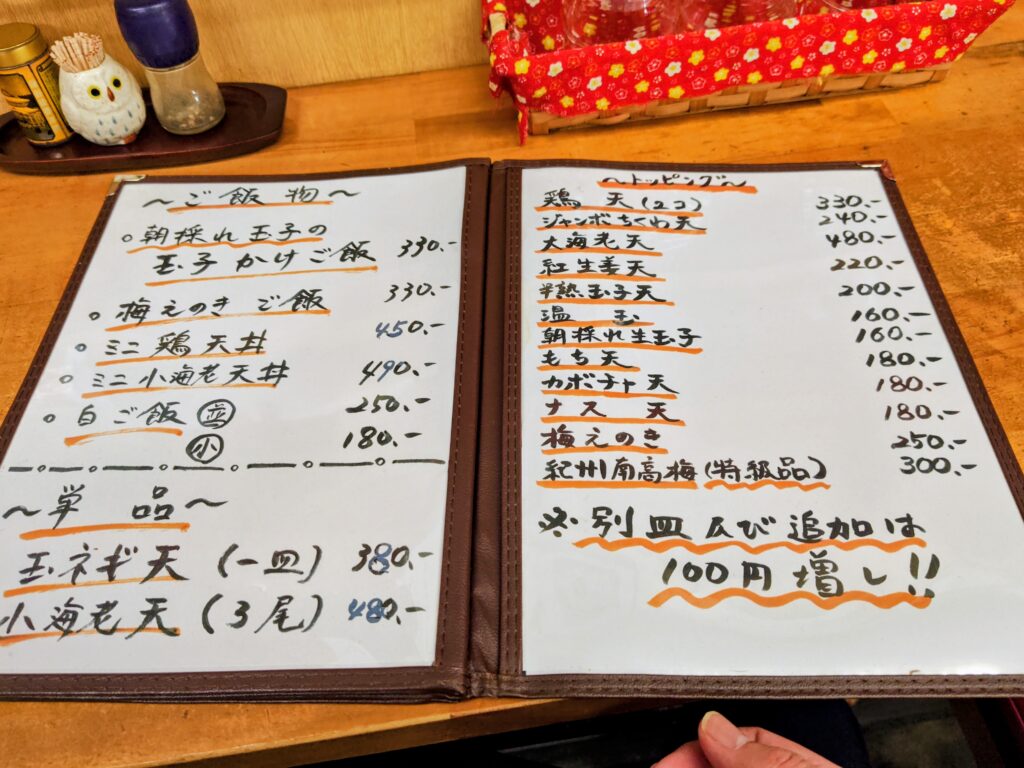 ～ご飯物～
○朝採れ玉子の
玉子かけご飯 330.-
○梅えのきご飯 330.-
○ミニ鶏天丼 450.-
○ミニ小海老天丼 490.-
○白ご飯 250.-
㊙小 180.-
～単品～
玉ネギ天(一皿) 380.-
小海老天(3尾) 480.-
～トッピング～
鶏天(2コ) 330.-
ジャンボちくわ天 240.-
大海老天 480.-
紅生姜天 220.-
半熟玉子天 200.-
温玉 160.-
朝採れ生玉子 160.-
もち天 180.-
カボチャ天 180.-
ナス天 180.-
梅えのき 250.-
紀州南高梅(特級品) 300.-
※別皿及び追加は
100円増し!!